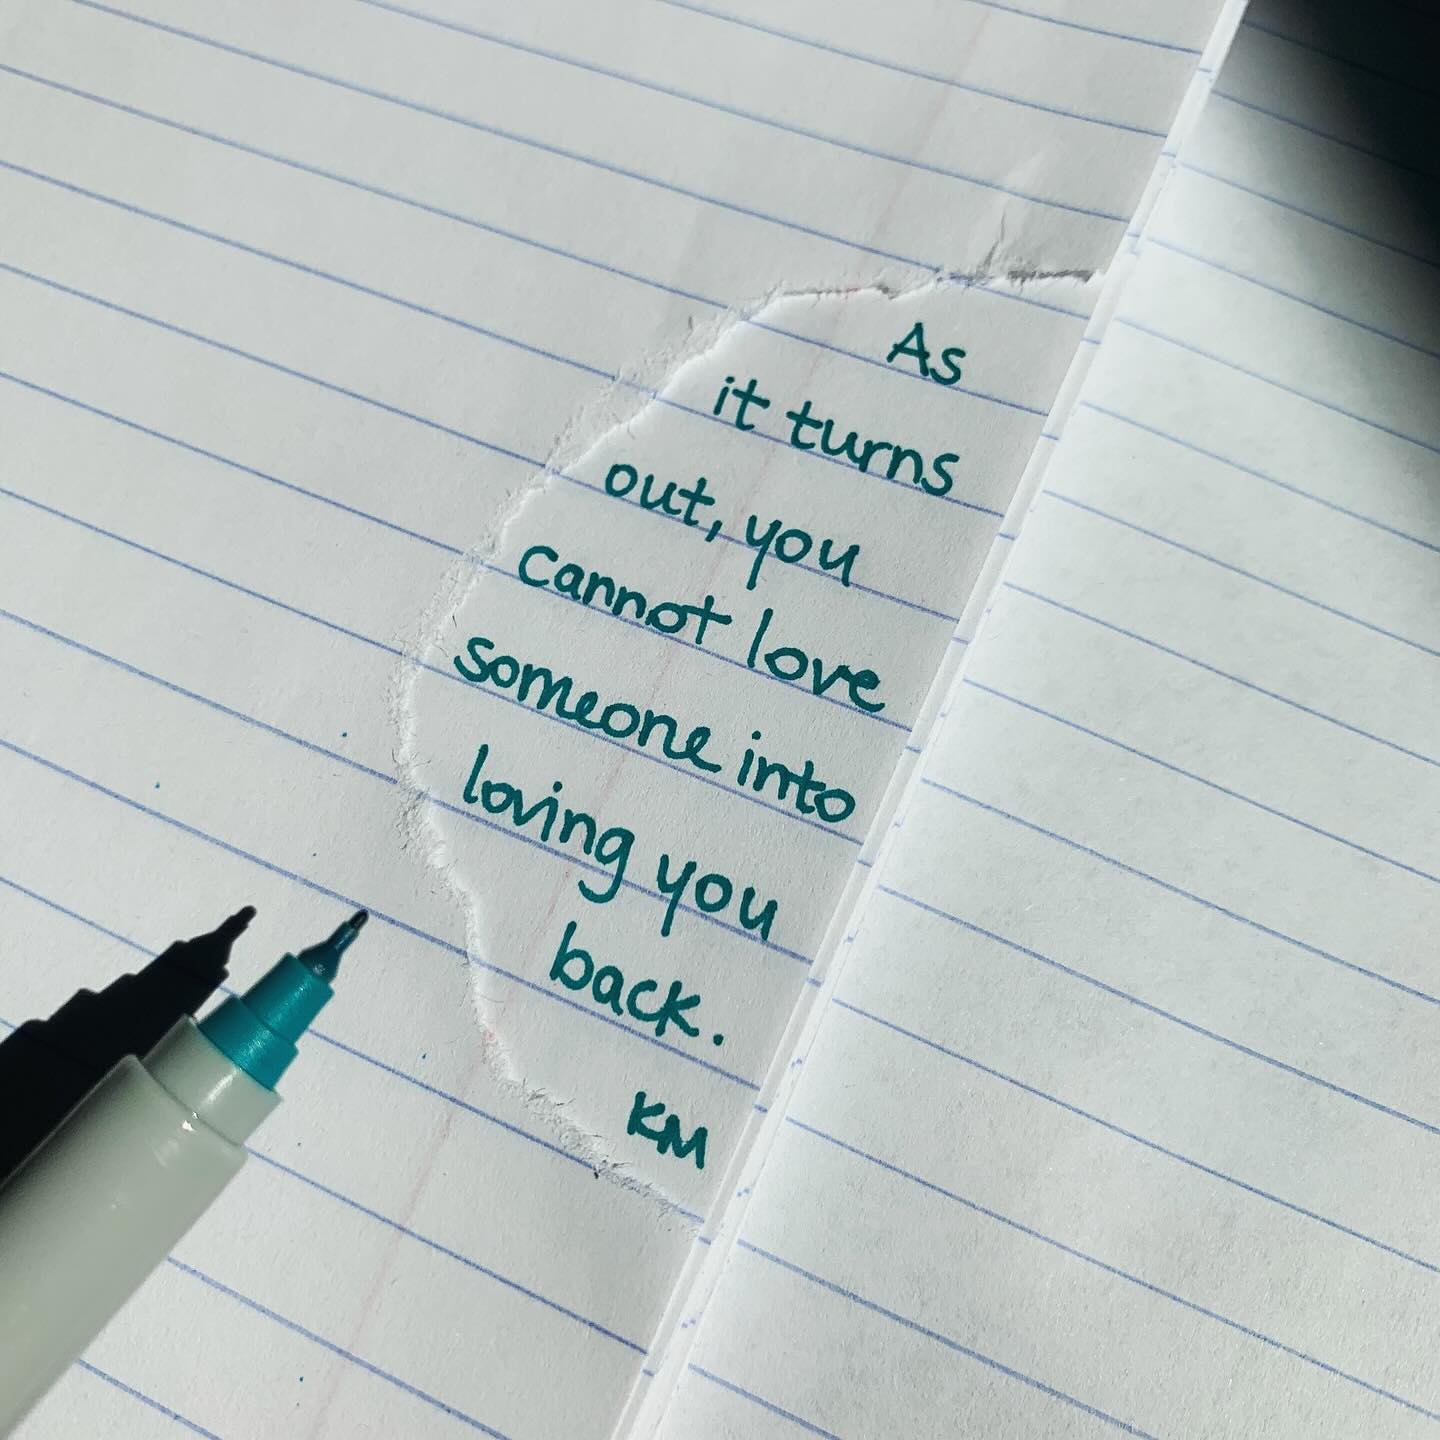 As
it turns
out, you
cannot love
someone into
loving you
back.
KM